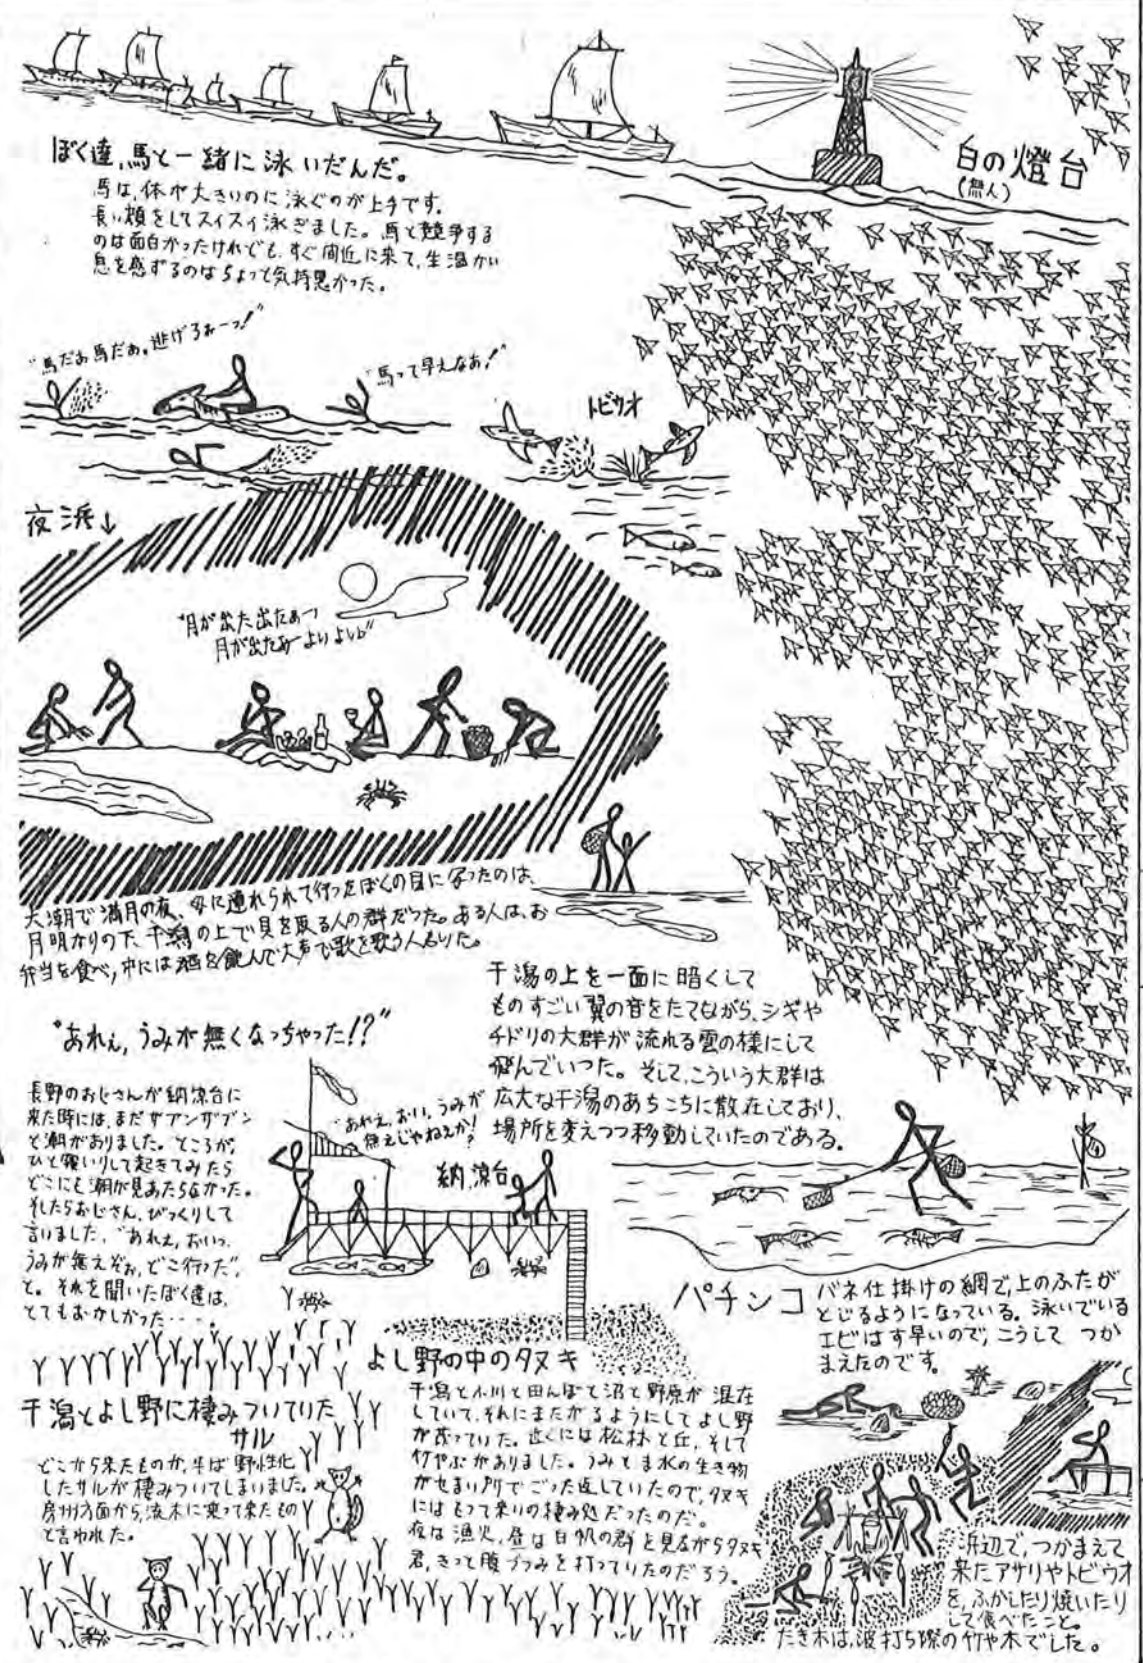 白の燈台
(無人)
ぼく達、馬と一緒に泳いだんだ。
馬は、体が大きいのに泳ぐのが上手です。
長い頬をしてスイスイ泳ぎました。馬と競争する
のは面白かったけれども、すぐ間近に来て、生温かい
息を感ずるのはちょっと気持悪かった。
"馬だぁ馬だぁ。逃げろぉーっ!"
"馬って早えなあ!"
トビウオ
夜浜↓
"月が出た出たぁーっ
月が出たぁー よいよいっ"
大潮で満月の夜、母に連れられて行ったぼくの目に写ったのは、
月明なりの下、干潟の上で貝を取る人の群だった。ある人は、お
弁当を食べ、中には酒を飲んで大声で歌を歌う人もいた。
干潟の上を一面に暗くして
ものすごい翼の音をたてながら、シギや
チドリの大群が流れる雲の様にして
飛んでいった。そして、こういう大群は
広大な干潟のあちこちに散在しており、
場所を変えつつ移動していたのである。
"あれぇ、うみが無くなっちゃった!?"
長野のおじさんが納涼台に
来た時には、まだザブンザブン
と潮がありました。ところが、
ひと寝いりして起きてみたら
どこにも潮が見あたらなかった。
そしたらおじさん、びっくりして
言いました。"あれぇ、おいっ、
うみが無えぞぉ、どこ行った"、
と。それを聞いたぼく達は、
とてもおかしかった・・・。
"あれぇ、おい、うみが
無えじゃねえか!"
納涼台
パチンコ
バネ仕掛けの網で、上のふたが
とじるようになっている。泳いでいる
エビはす早いので、こうして つか
まえたのです。
よし野の中のタヌキ
干潟と小川と田んぼと沼と野原が混在
していて、それにまたがるようにしてよし野
が茂っていた。近くには松林と丘、そして
竹やぶがありました。うみとま水の生き物
がせまい所でごった返していたので、タヌキ
にはもって来いの棲み処だったのだ。
夜は漁火、昼は白帆の群を見ながらタヌキ
君、きって腹づつみを打っていたのだろう。
干潟とよし野に棲みついていた
サル
どこから来たものか、半ば野性化
したサルが棲みついてしまいました。
房州方面から、流木に乗って来たもの
と言われた。
浜辺で、つかまえて
来たアサリやトビウオ
を、ふかしたり焼いたり
して食べたこと。
たき木は、波打ち際の竹や木でした。